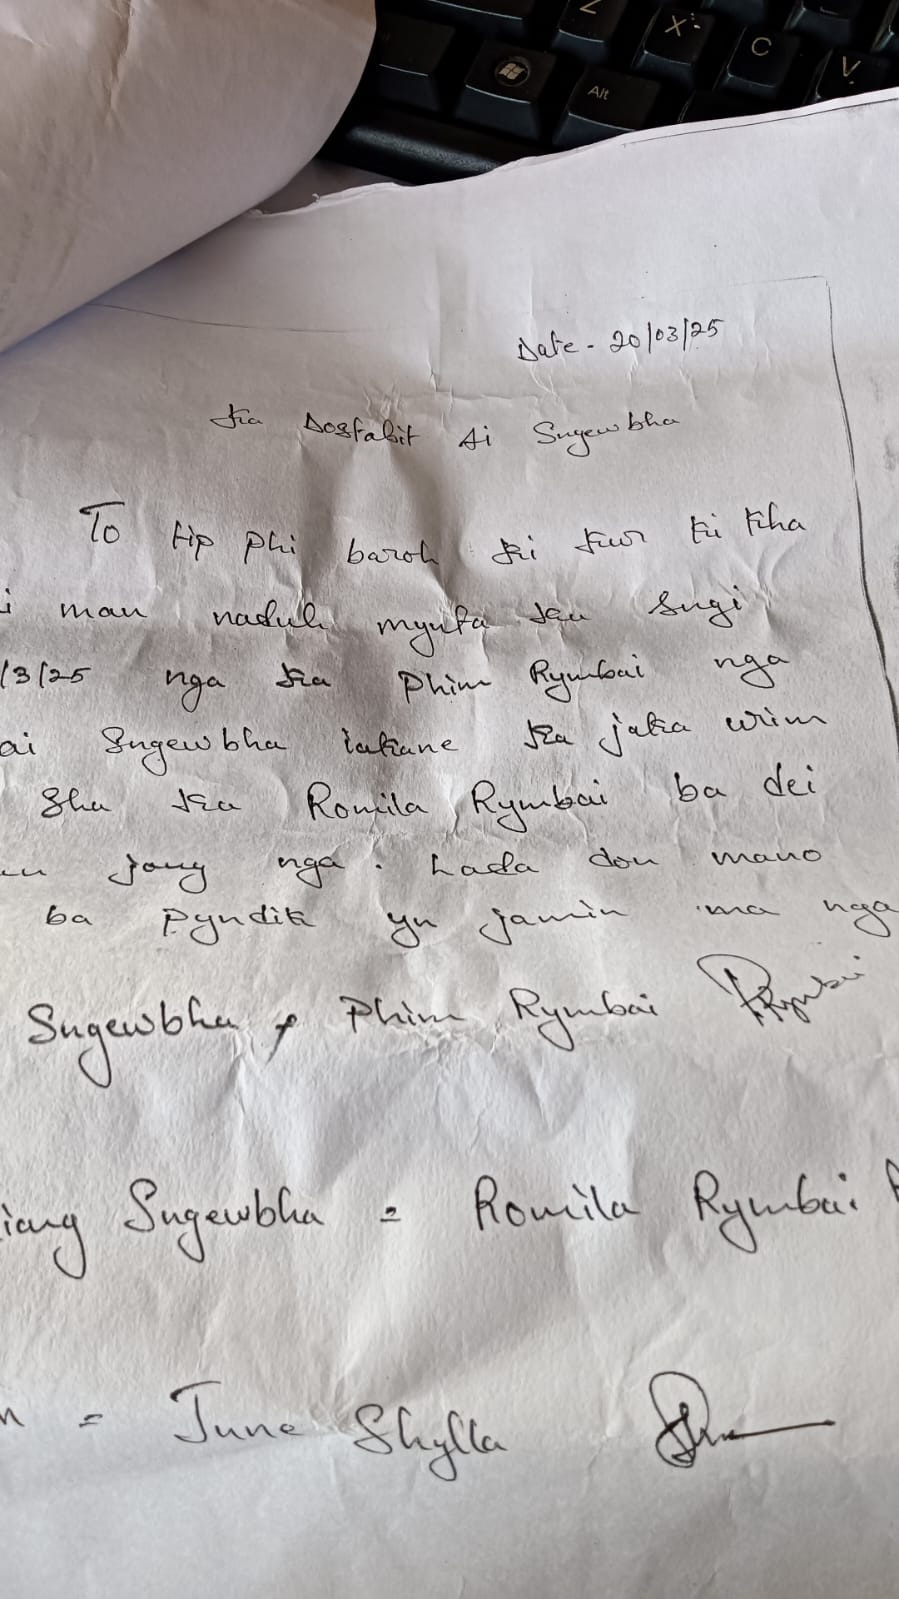 Z X C V
Alt
Date - 20/03/25
Ka Dostabit Ai Sngewbha
To tip phi baroh ki kur ki kha
i man naduh mynta ka sngi
/3/25 nga ka Phim Rymbai nga
ai Sngewbha iakane ka jaka wim
Sha ka Romila Rymbai ba dei
jong nga. Lada don mano
ba pyndik yn jamin ma nga
Sngewbha, Phim Rymbai PRymbai
iang Sngewbha = Romila Rymbai
n = June Shylla